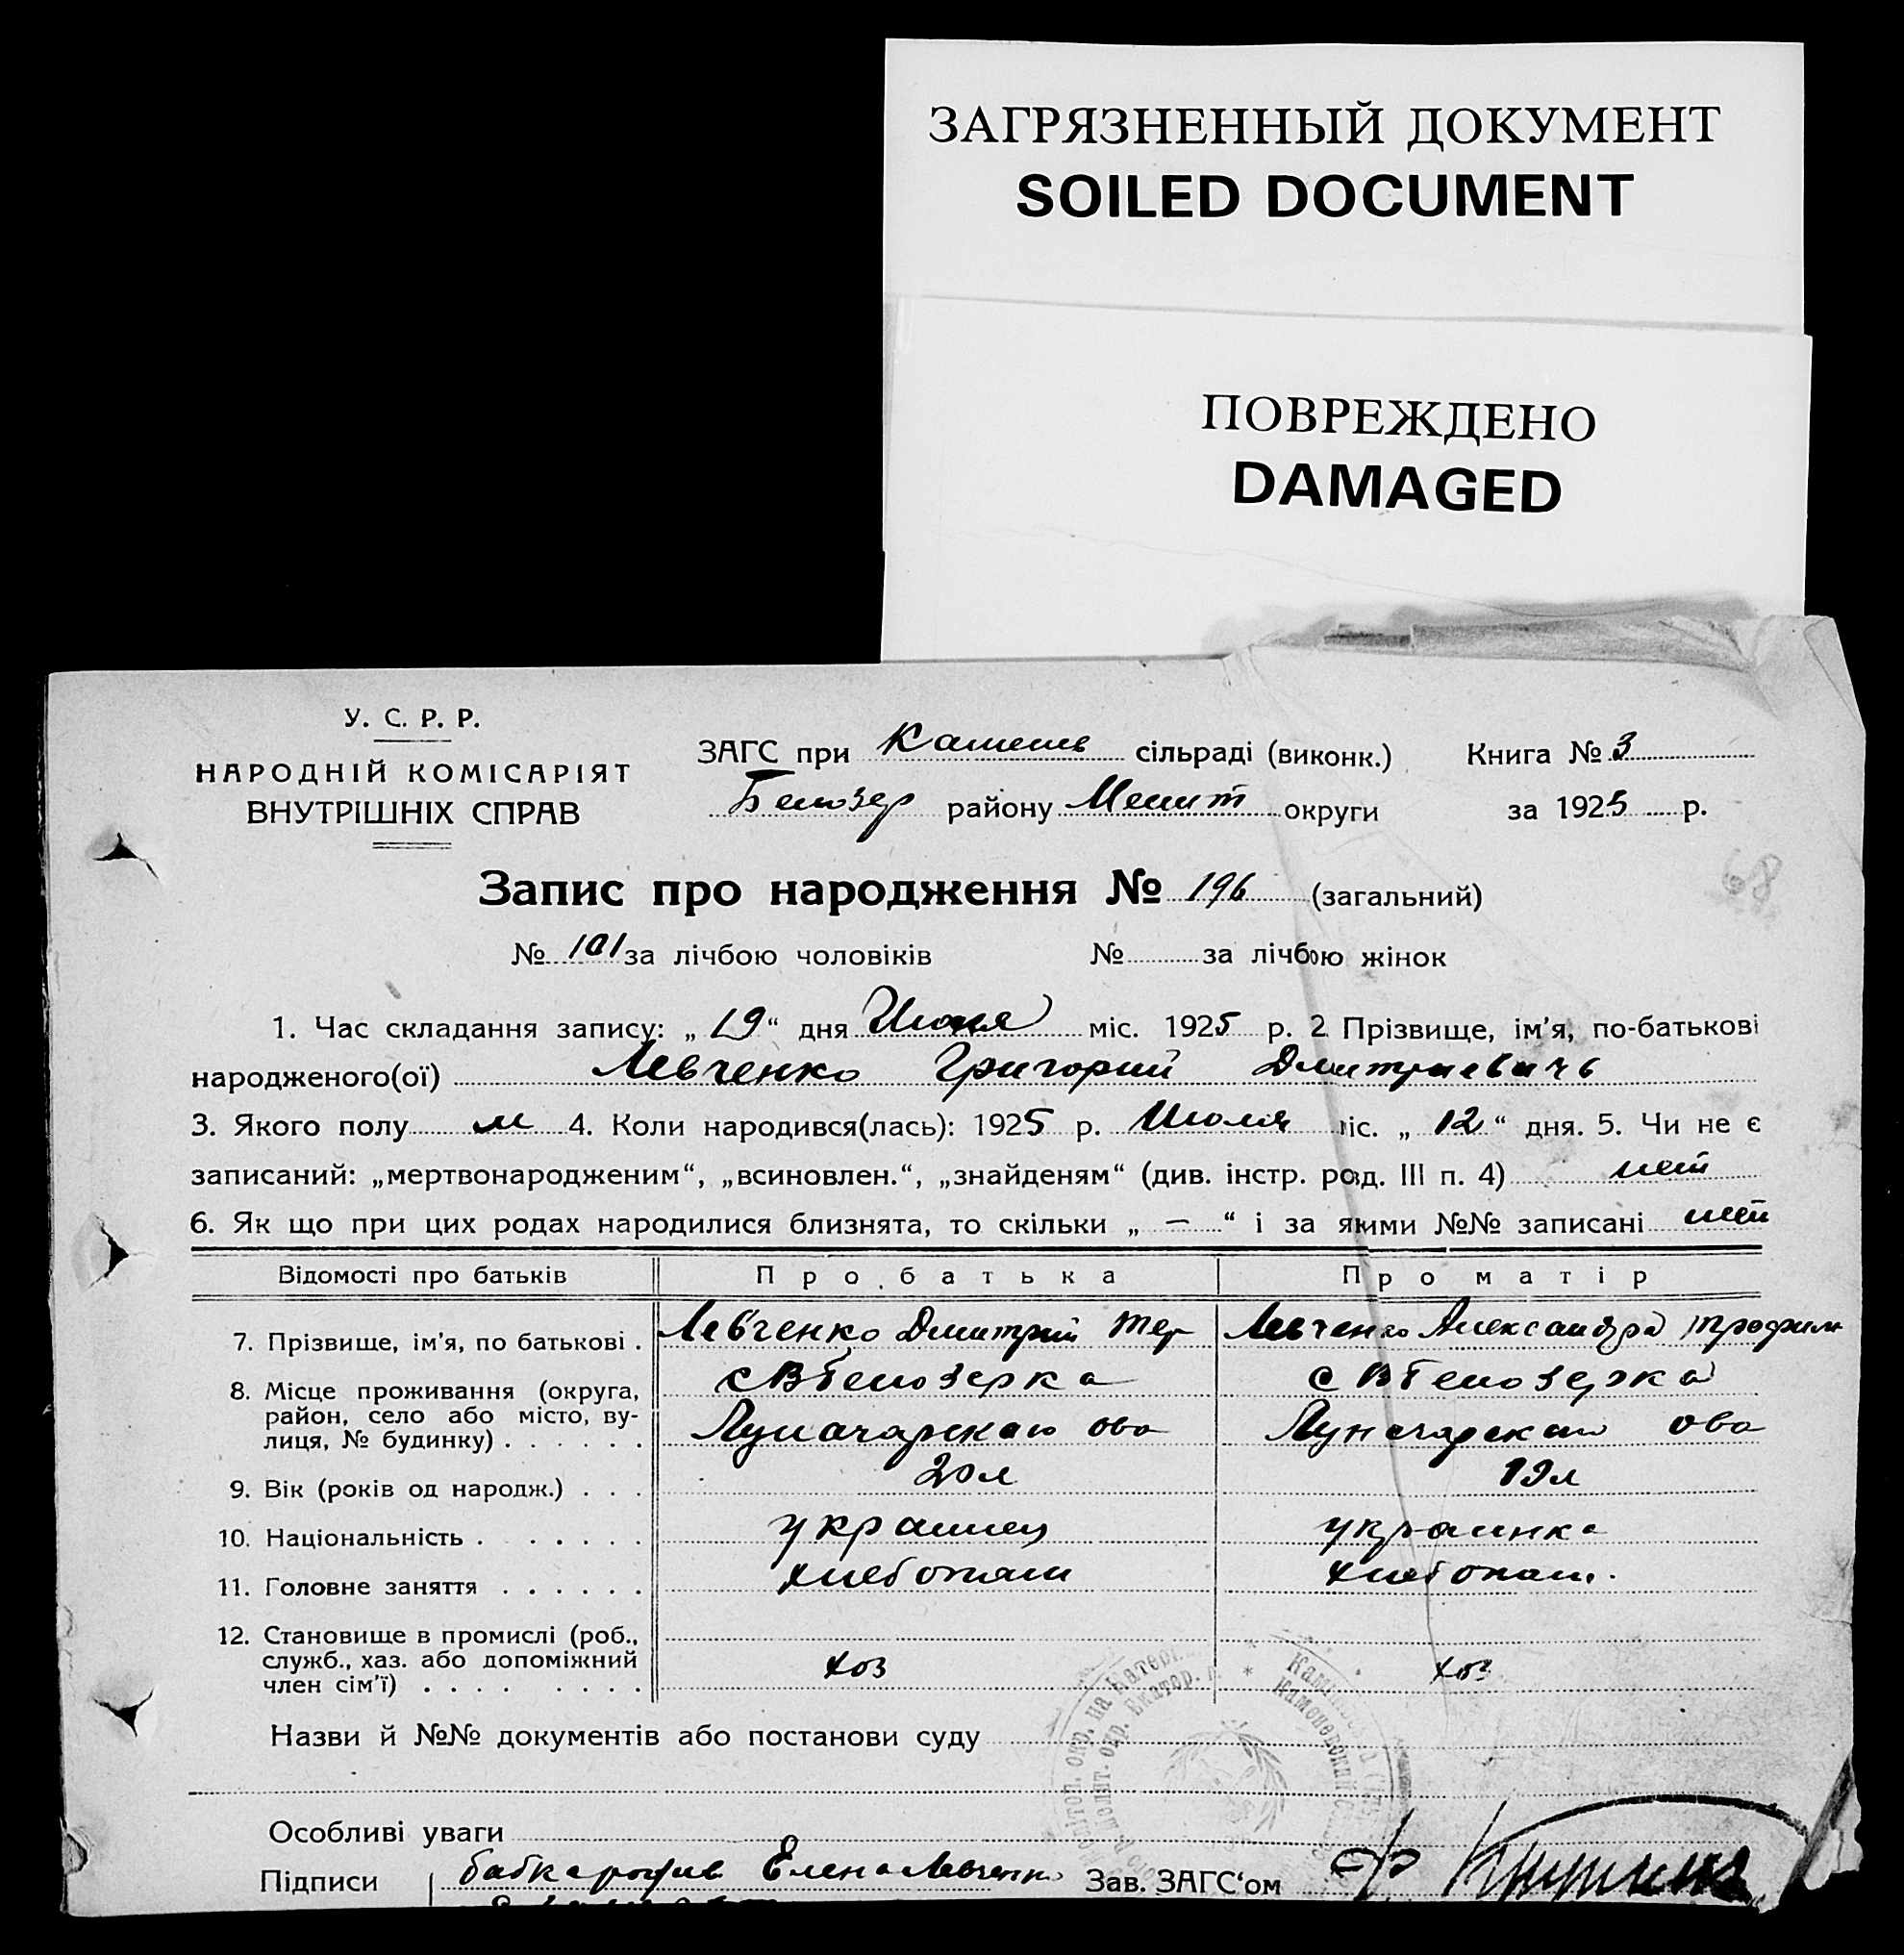 ЗАГРЯЗНЕННЫЙ ДОКУМЕНТ
SOILED DOCUMENT
ПОВРЕЖДЕНО
DAMAGED
У. С. Р. Р.
НАРОДНІЙ КОМІСАРІЯТ
ВНУТРІШНІХ СПРАВ
ЗАГС при Каменс сільраді (виконк.)
Белозер району Мелит округи
Книга № 3
за 1925 р.
68
Запис про народження № 196 (загальний)
№ 101 за лічбою чоловіків № за лічбою жінок
1. Час складання запису: „ 19 “ дня міс. 1925 р. 2 Прізвище, ім'я, по-батькові
народженого(ої) Левченко Григорий Дмитриевичь
3. Якого полу м 4. Коли народився(лась): 1925 р. Июля міс. „ 12 “ дня. 5. Чи не є
записаний: „мертвонародженим“, „всиновлен.“, „знайденям“ (див. інстр. розд. III п. 4) нет
6. Як що при цих родах народилися близнята, то скільки „ — “ і за якими №№ записані нет
Відомості про батьків Про батька Про матір
7. Прізвище, ім'я, по батькові . Левченко Дмитрий Тер Левченко Александра Трофим
8. Місце проживання (округа, район, село або місто, вулиця, № будинку) . . . . . . с В Белозерка с В Белозерка
Луначарскаго ова Луначарскаго ова
9. Вік (років од народж.) . . . 20 л 19 л
10. Національність . . . . . . украинец украинка
11. Головне заняття . . . . . . хлебопаш хлебопаш.
12. Становище в промислі (роб., служб., хаз. або допоміжний член сім'ї) . . . . . . . . хоз хоз
Назви й №№ документів або постанови суду
Особливі уваги
Підписи Елена Левченко Зав. ЗАГС'ом